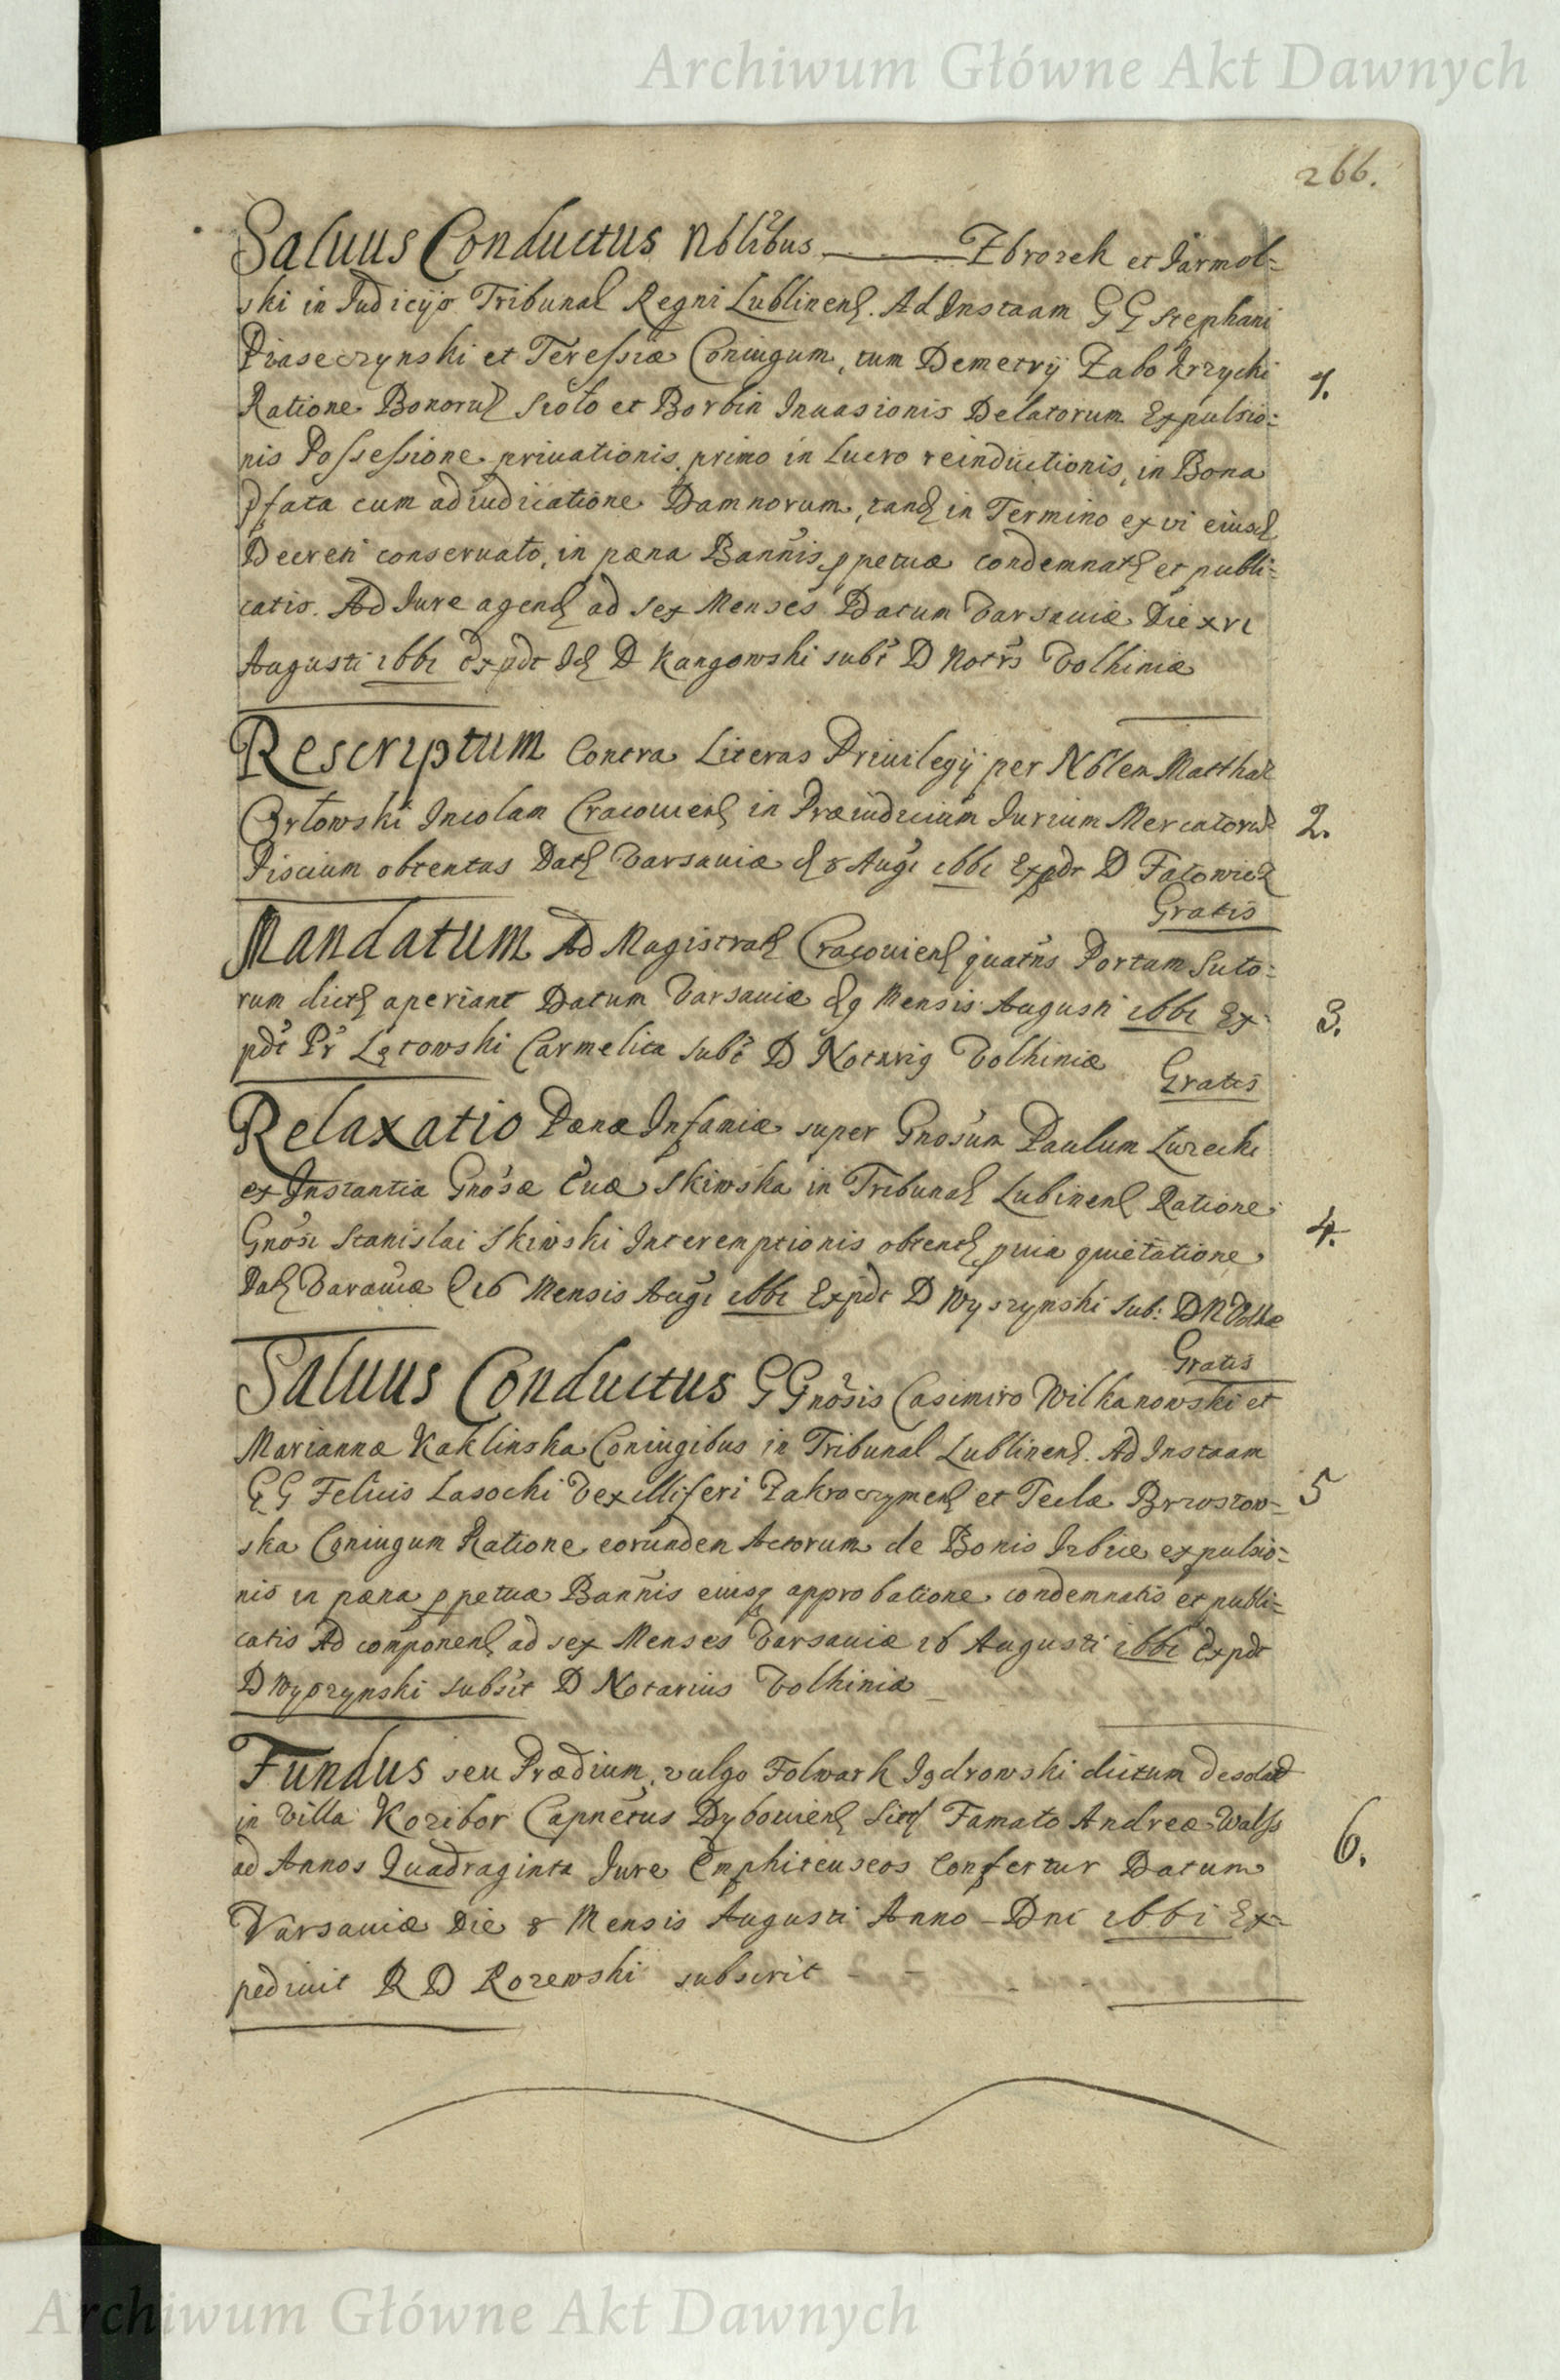 Archiwum Główne Akt Dawnych
266.
Saluus Conductus Nblibus ——— Zbrozek et Jarmol=
ski in Judicijs Tribunal Regni Lublinens. Ad Instaam GG Stephani
Piaseczynski et Teressiæ Coniugum, tum Demetrij Zabokrzycki
1.
Ratione Bonorum Scoło et Borbin Inuasionis Delatorum Expulsio=
nis Possessione priuationis primo in Lucro reinductionis, in Bona
pfata cum adiudicatione Damnorum, tand in Termino ex vi eiusd
Decreti conseruato, in pæna Bannis ppetuæ condemnat et publi=
catis. Ad Jure agend ad sex Menses Datum Varsauiæ Die XVI
Augusti 1661 Expdt D Kangowski subt D Notrs Volhiniæ
Rescriptum Contra Literas Priuilegij per Nblem Matthæ
Orłowski Incolam Cracouiens in Præiudicium Jurium Mercatorum
2.
Piscium obtentas Dat Varsauiæ d 8 Augi 1661 Expdt D Fatowicz
Gratis
Mandatum Ad Magistrat Cracouiens quatns Portam Suto=
rum dict aperiant Datum Varsauiæ d 9 Mensis Augusti 1661 Ex=
3.
pdt Pr Lętowski Carmelita subt D Notarig Volhiniæ
Gratis
Relaxatio Pænæ Infamiæ super Gnosum Paulum Turecki
ex Instantia Gnosæ Euæ Skiwska in Tribunal Lubinens Ratione
Gnosi Stanislai Skiwski Interemptionis obtent puia quietatione
4.
Dat Varauiæ D 16 Mensis Augi 1661 Expdt D Wyszynski Sub: DN Volhæ
Gratis
Saluus Conductus GGnosis Casimiro Wilkanowski et
Mariannæ Kaklinska Coniugibus in Tribunal Lublinens. Ad Instaam
GG Felicis Lasocki Vexilliferi Zakroczymens et Teclæ Brzostow=
5
ska Coniugum Ratione eorundem Actorum de Bonis Izbice expulsio=
nis in pæna ppetuæ Bannis eiusq approbatione condemnatis et publi=
catis Ad componend ad sex Menses Varsauiæ 16 Augusti 1661 Expdt
D Wyszynski subsit D Notarius Volhiniæ
Fundus seu Prædium, vulgo Folwark Jgdrowski dictum desolat
in Villa Kozibor Capnetus Dybouiens Sit Famato Andreæ Walss
ad Annos Quadraginta Jure Emphiteuseos Confertur Datum
6.
Varsauiæ Die 8 Mensis Augusti Anno Dni 1661 Ex=
pediuit R D Rozewski subscrit
Archiwum Główne Akt Dawnych